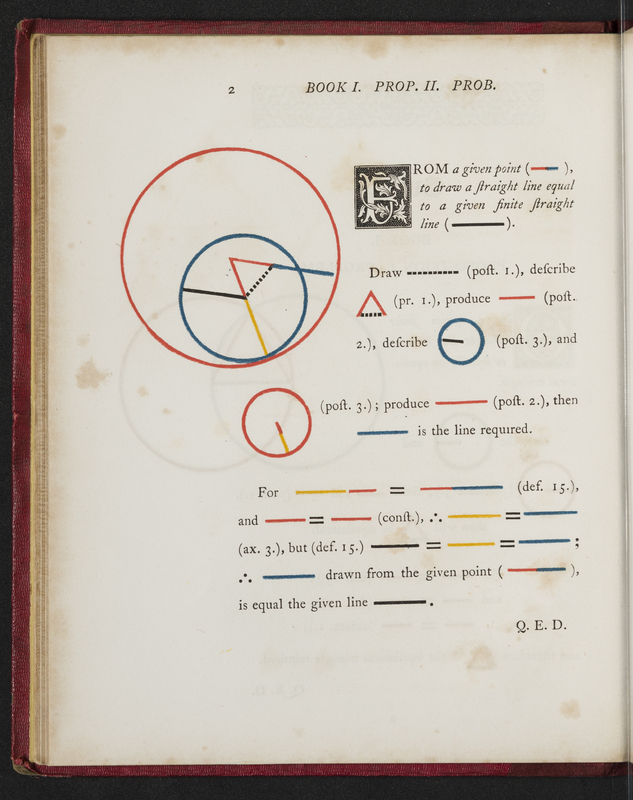 2
BOOK I. PROP. II. PROB.
FROM a given point ( ),
to draw a ſtraight line equal
to a given finite ſtraight
line ( ).
Draw (poſt. 1.), deſcribe
(pr. 1.), produce (poſt.
2.), deſcribe (poſt. 3.), and
(poſt. 3.); produce (poſt. 2.), then
is the line required.
For = (def. 15.),
and = (conſt.), ∴ =
(ax. 3.), but (def. 15.) = = ;
∴ drawn from the given point ( ),
is equal the given line .
Q. E. D.